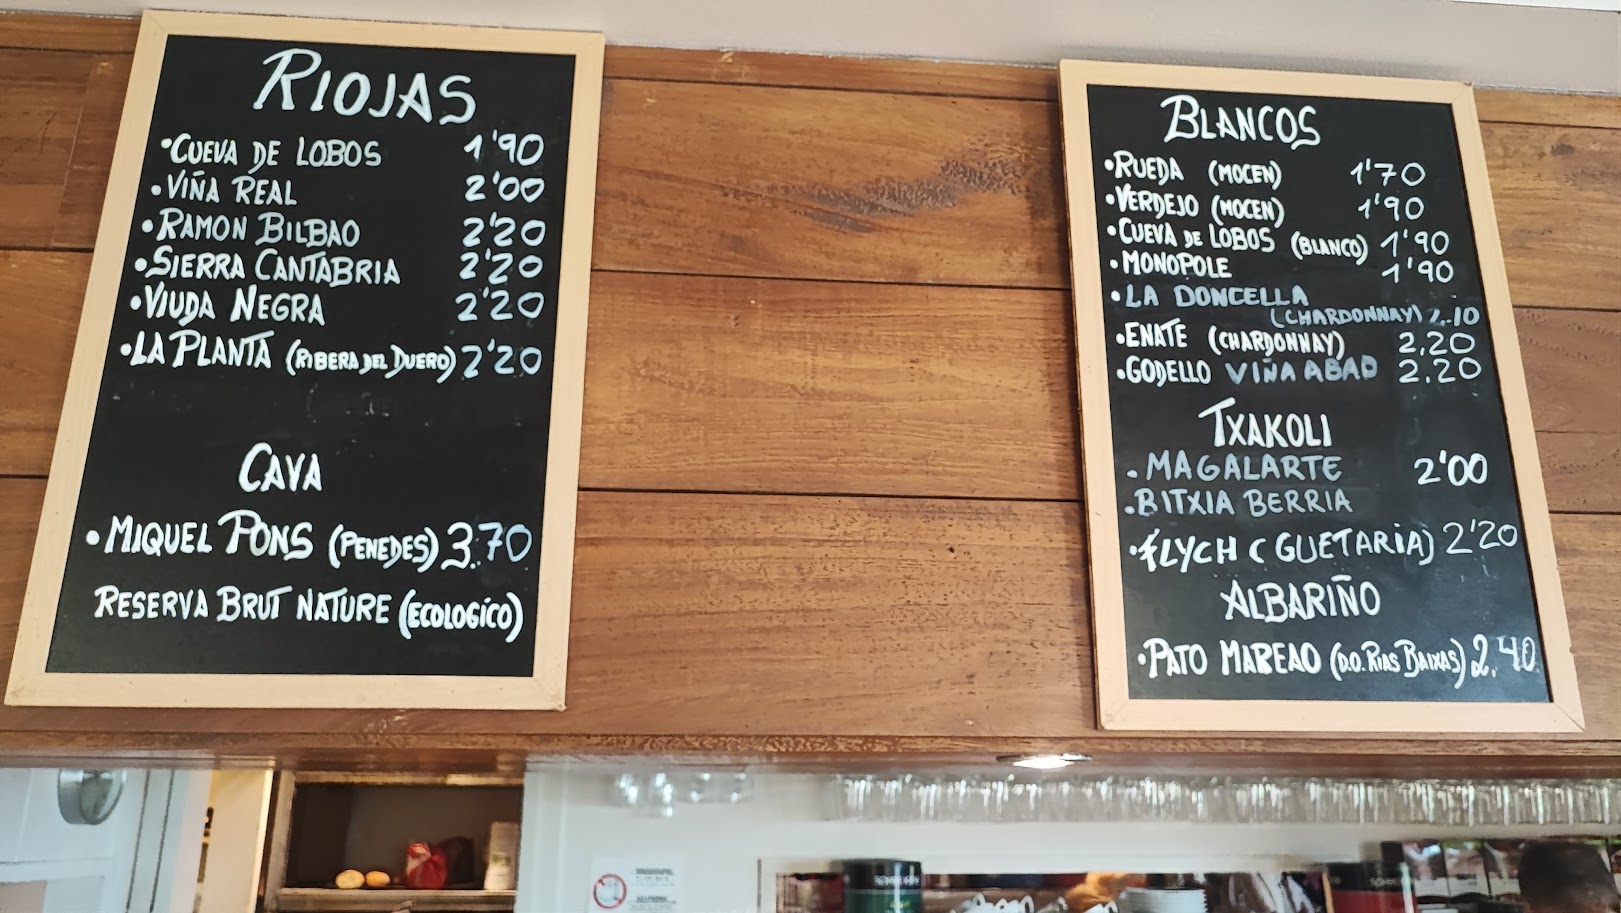 RIOJAS
•CUEVA DE LOBOS 1'90
•VIÑA REAL 2'00
•RAMON BILBAO 2'20
•SIERRA CANTABRIA 2'20
•VIUDA NEGRA 2'20
•LA PLANTA (RIBERA DEL DUERO) 2'20
CAVA
•MIQUEL PONS (PENEDES) 3.70
RESERVA BRUT NATURE (ECOLOGíCO)
BLANCOS
•RUEDA (MOCEN) 1'70
•VERDEJO (MOCEN) 1'90
•CUEVA DE LOBOS (BLANCO) 1'90
•MONOPOLE 1'90
•LA DONCELLA
(CHARDONNAY) 2.10
•ENATE (CHARDONNAY) 2.20
•GODELLO VIÑA ABAD 2.20
TXAKOLI
•MAGALARTE 2'00
•BITXIA BERRIA
•FLYCH (GUETARIA) 2'20
ALBARIÑO
•PATO MAREAO (D.O. RIAS BAIXAS) 2.40